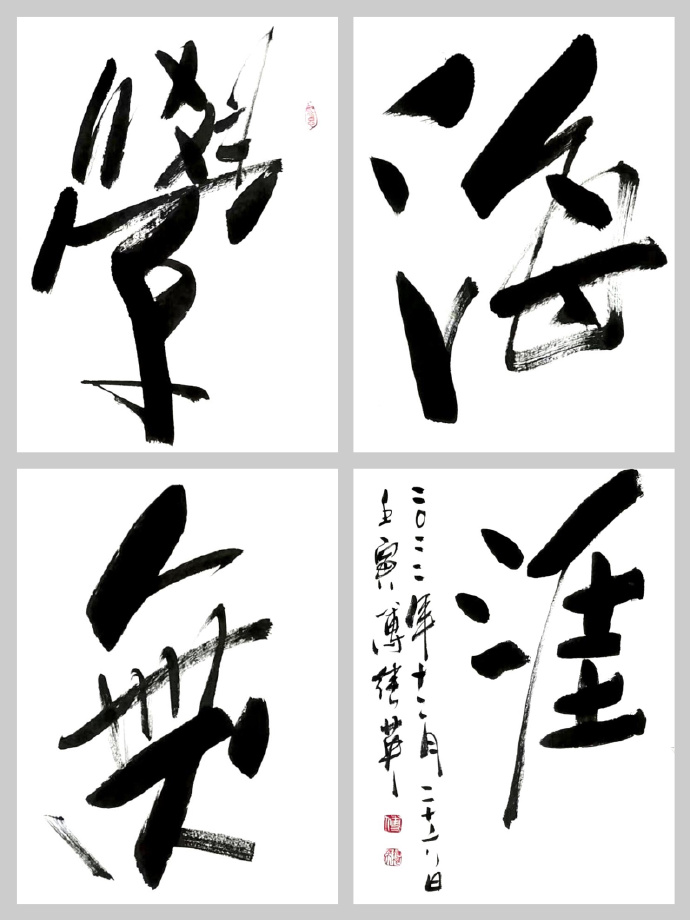 學
海
無
涯
二〇二二年十二月二十六日
壬寅傅繼英